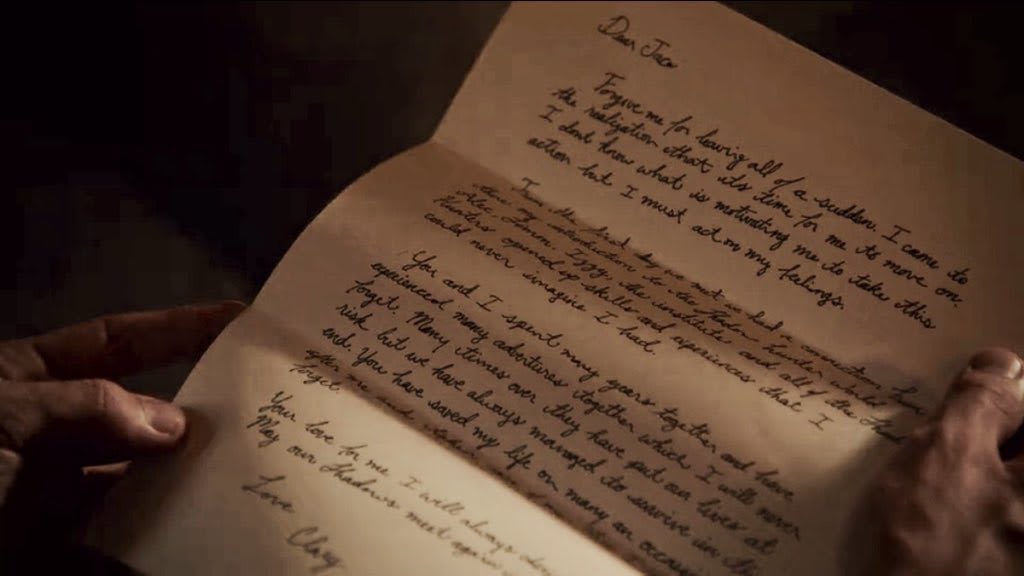 Dear Jace
Forgive me for leaving all of a sudden. I came to
the realization that its time for me to move on.
I dont know what is motivating me to take this
action but I must act on my feelings.
I
the introduction to the
Alec, Simon, Izzy, the institute and all of the
Hunters opened up skills and experiences that I
could never imagine I had.
You and I spent many years together and have
experienced many adventures together which I will never
forget. Many times over they have put our lives at
risk but we have always managed to survive in the
end. You have saved my life on many an
forget me and
Your love for me I will always
May our Shadows meet again
Love Clary